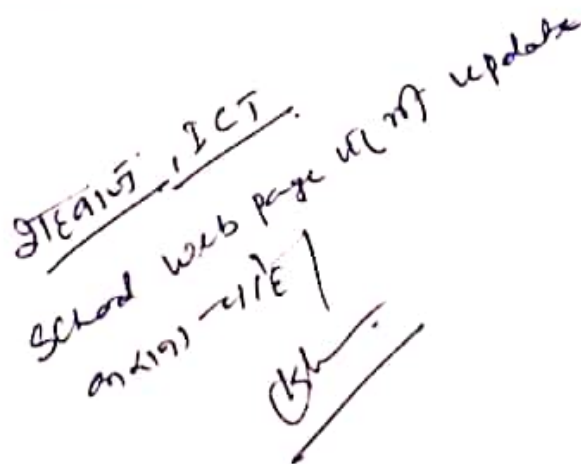 शाहबाज, ICT
School web page पर भी update
करवाना चाहें।